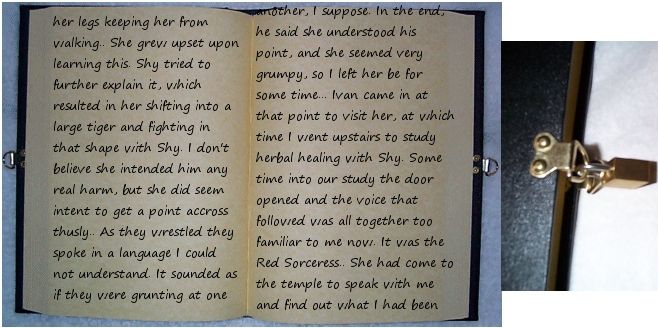 her legs keeping her from
walking.. She grew upset upon
learning this. Shy tried to
further explain it, which
resulted in her shifting into a
large tiger and fighting in
that shape with Shy. I don't
believe she intended him any
real harm, but she did seem
intent to get a point accross
thusly.. As they wrestled they
spoke in a language I could
not understand. It sounded as
if they were grunting at one
another, I suppose. In the end,
he said she understood his
point, and she seemed very
grumpy, so I left her be for
some time... Ivan came in at
that point to visit her, at which
time I went upstairs to study
herbal healing with Shy. Some
time into our study the door
opened and the voice that
followed was all together too
familiar to me now. It was the
Red Sorceress.. She had come to
the temple to speak with me
and find out what I had been